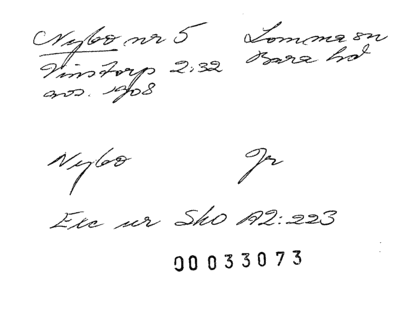 Nybo nr 5 Lomma sn
Vinstorp 2:32 Bara hd
avs. 1908
Nybo Jr
Exc ur Sko A2:223
00033073